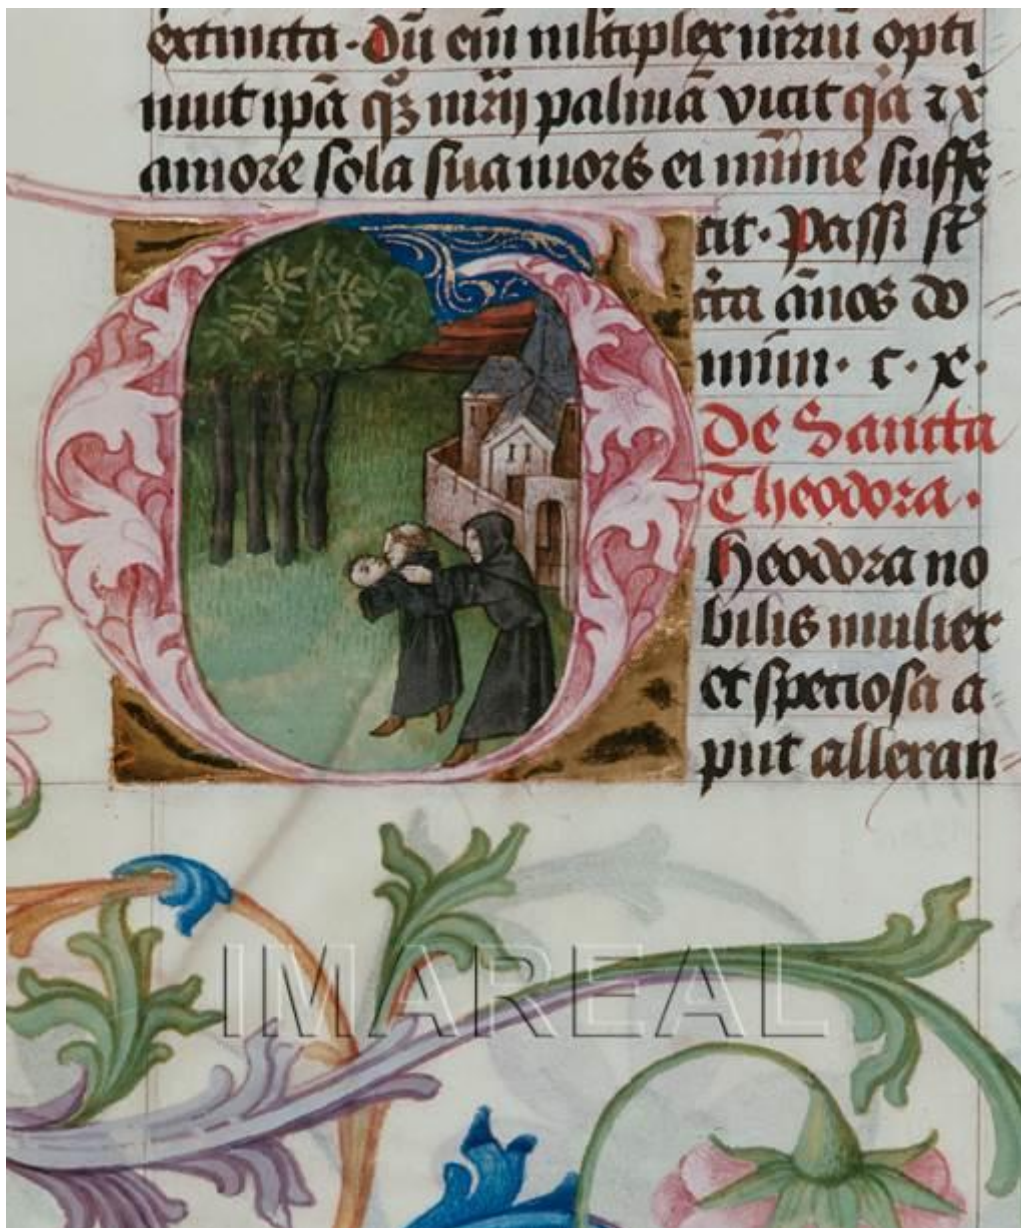 extincta. Dū em̄ mltiplex mr̄iū opti
nuit ipā qʒ mr̄ij palmā vicit qͣ ⁊ x̄
amore sola sua mors ei mīme suffe
cit. Passi st̄
cͥca ānos do
mini. c. x.
De Sancta
Theodora.
heodora no
bilis mulier
et speciosa a
put allexan
IMAREAL